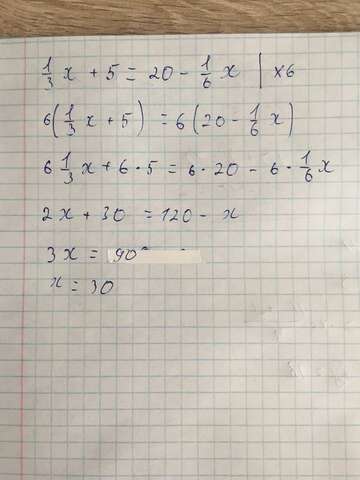 1/3 x + 5 = 20 - 1/6 x | x6
6(1/3 x + 5) = 6(20 - 1/6 x)
6 1/3 x + 6 · 5 = 6 · 20 - 6 · 1/6 x
2x + 30 = 120 - x
3x = 90
x = 30